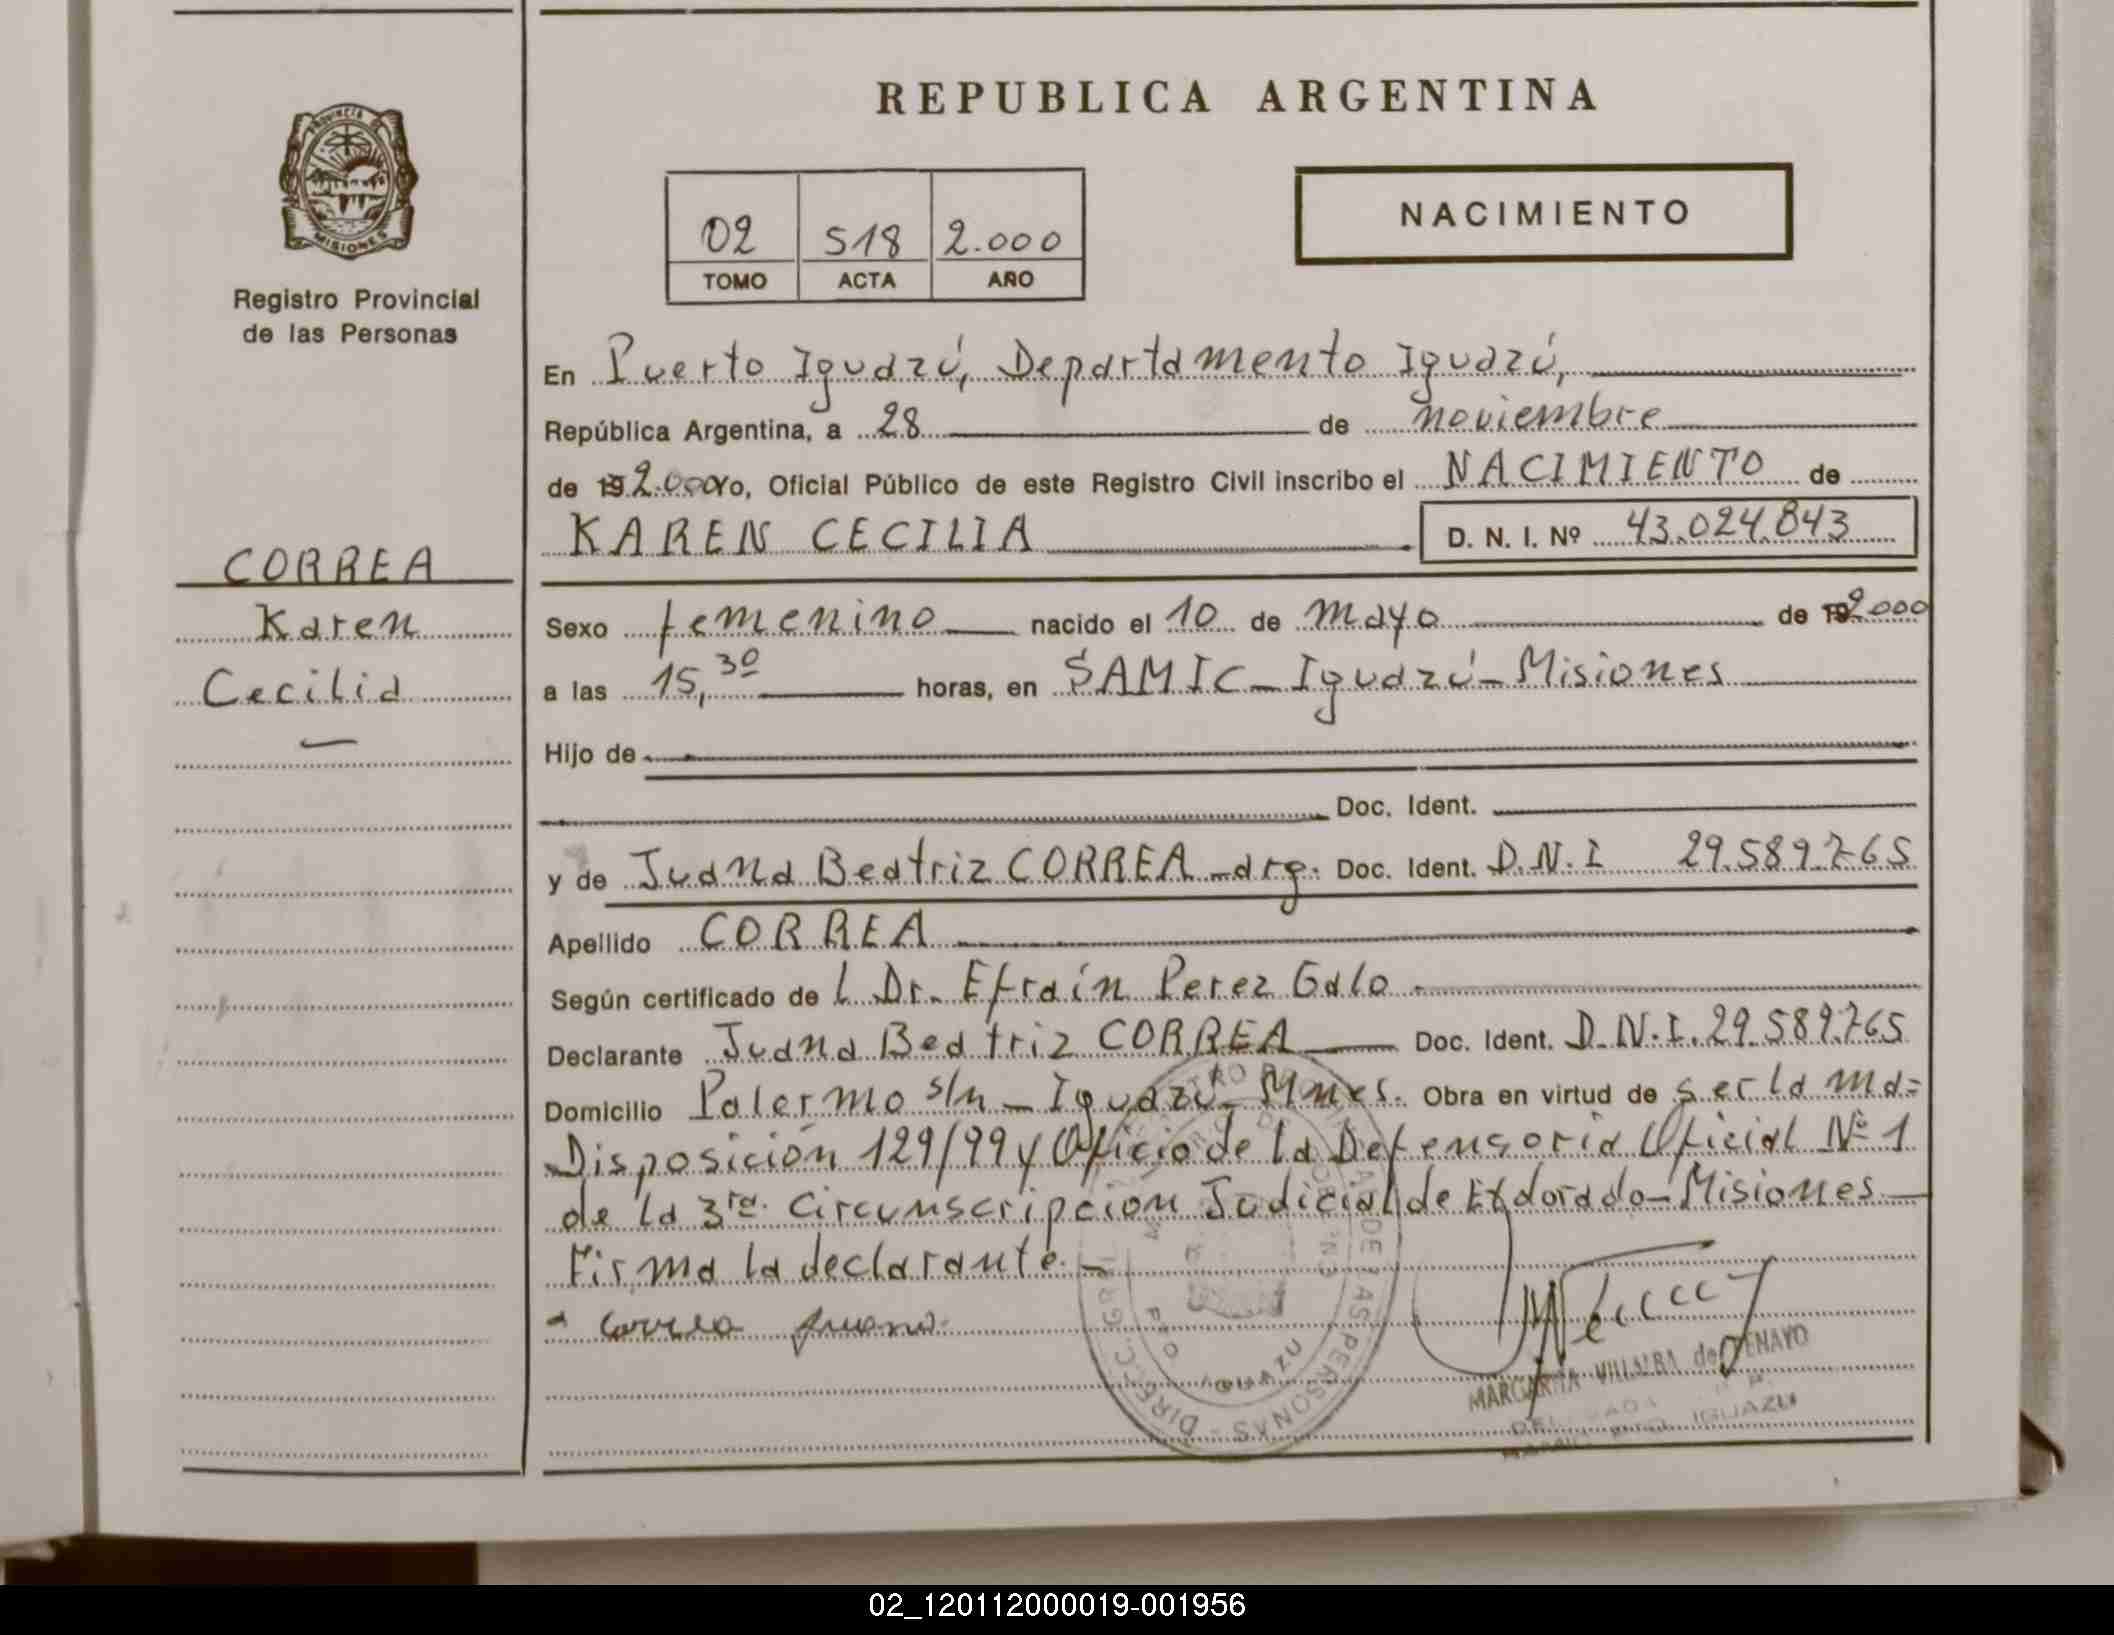 REPUBLICA ARGENTINA
PROVINCIA DE
MISIONES
Registro Provincial
de las Personas
02 518 2.000
TOMO ACTA AÑO
NACIMIENTO
En Puerto Iguazú, Departamento Iguazú,
República Argentina, a 28 de noviembre
de 192.000Yo, Oficial Público de este Registro Civil inscribo el NACIMIENTO de
KAREN CECILIA D. N. I. Nº 43.024.843
CORREA
Karen
Cecilia
Sexo femenino nacido el 10 de mayo de 192000
a las 15,30 horas, en SAMIC - Iguazú - Misiones
Hijo de
Doc. Ident.
y de Juana Beatriz CORREA - arg. Doc. Ident. D.N.I 29.589.765
Apellido CORREA
Según certificado de l Dr. Efraín Perez Galo
Declarante Juana Beatriz CORREA Doc. Ident. D.N.I. 29.589.765
Domicilio Palermo s/n - Iguazú - Mnes. Obra en virtud de ser la ma=
Disposición 129/99 y Oficio de la Defensoria Oficial Nº 1
de la 3ra. Circunscripcion Judicial de Eldorado - Misiones
Firma la declarante. -
Correa Juana
MARGARITA VILLALBA de DENAYO
IGUAZU
DE LAS PERSONAS - DIRECC
IGUAZU
02_120112000019-001956